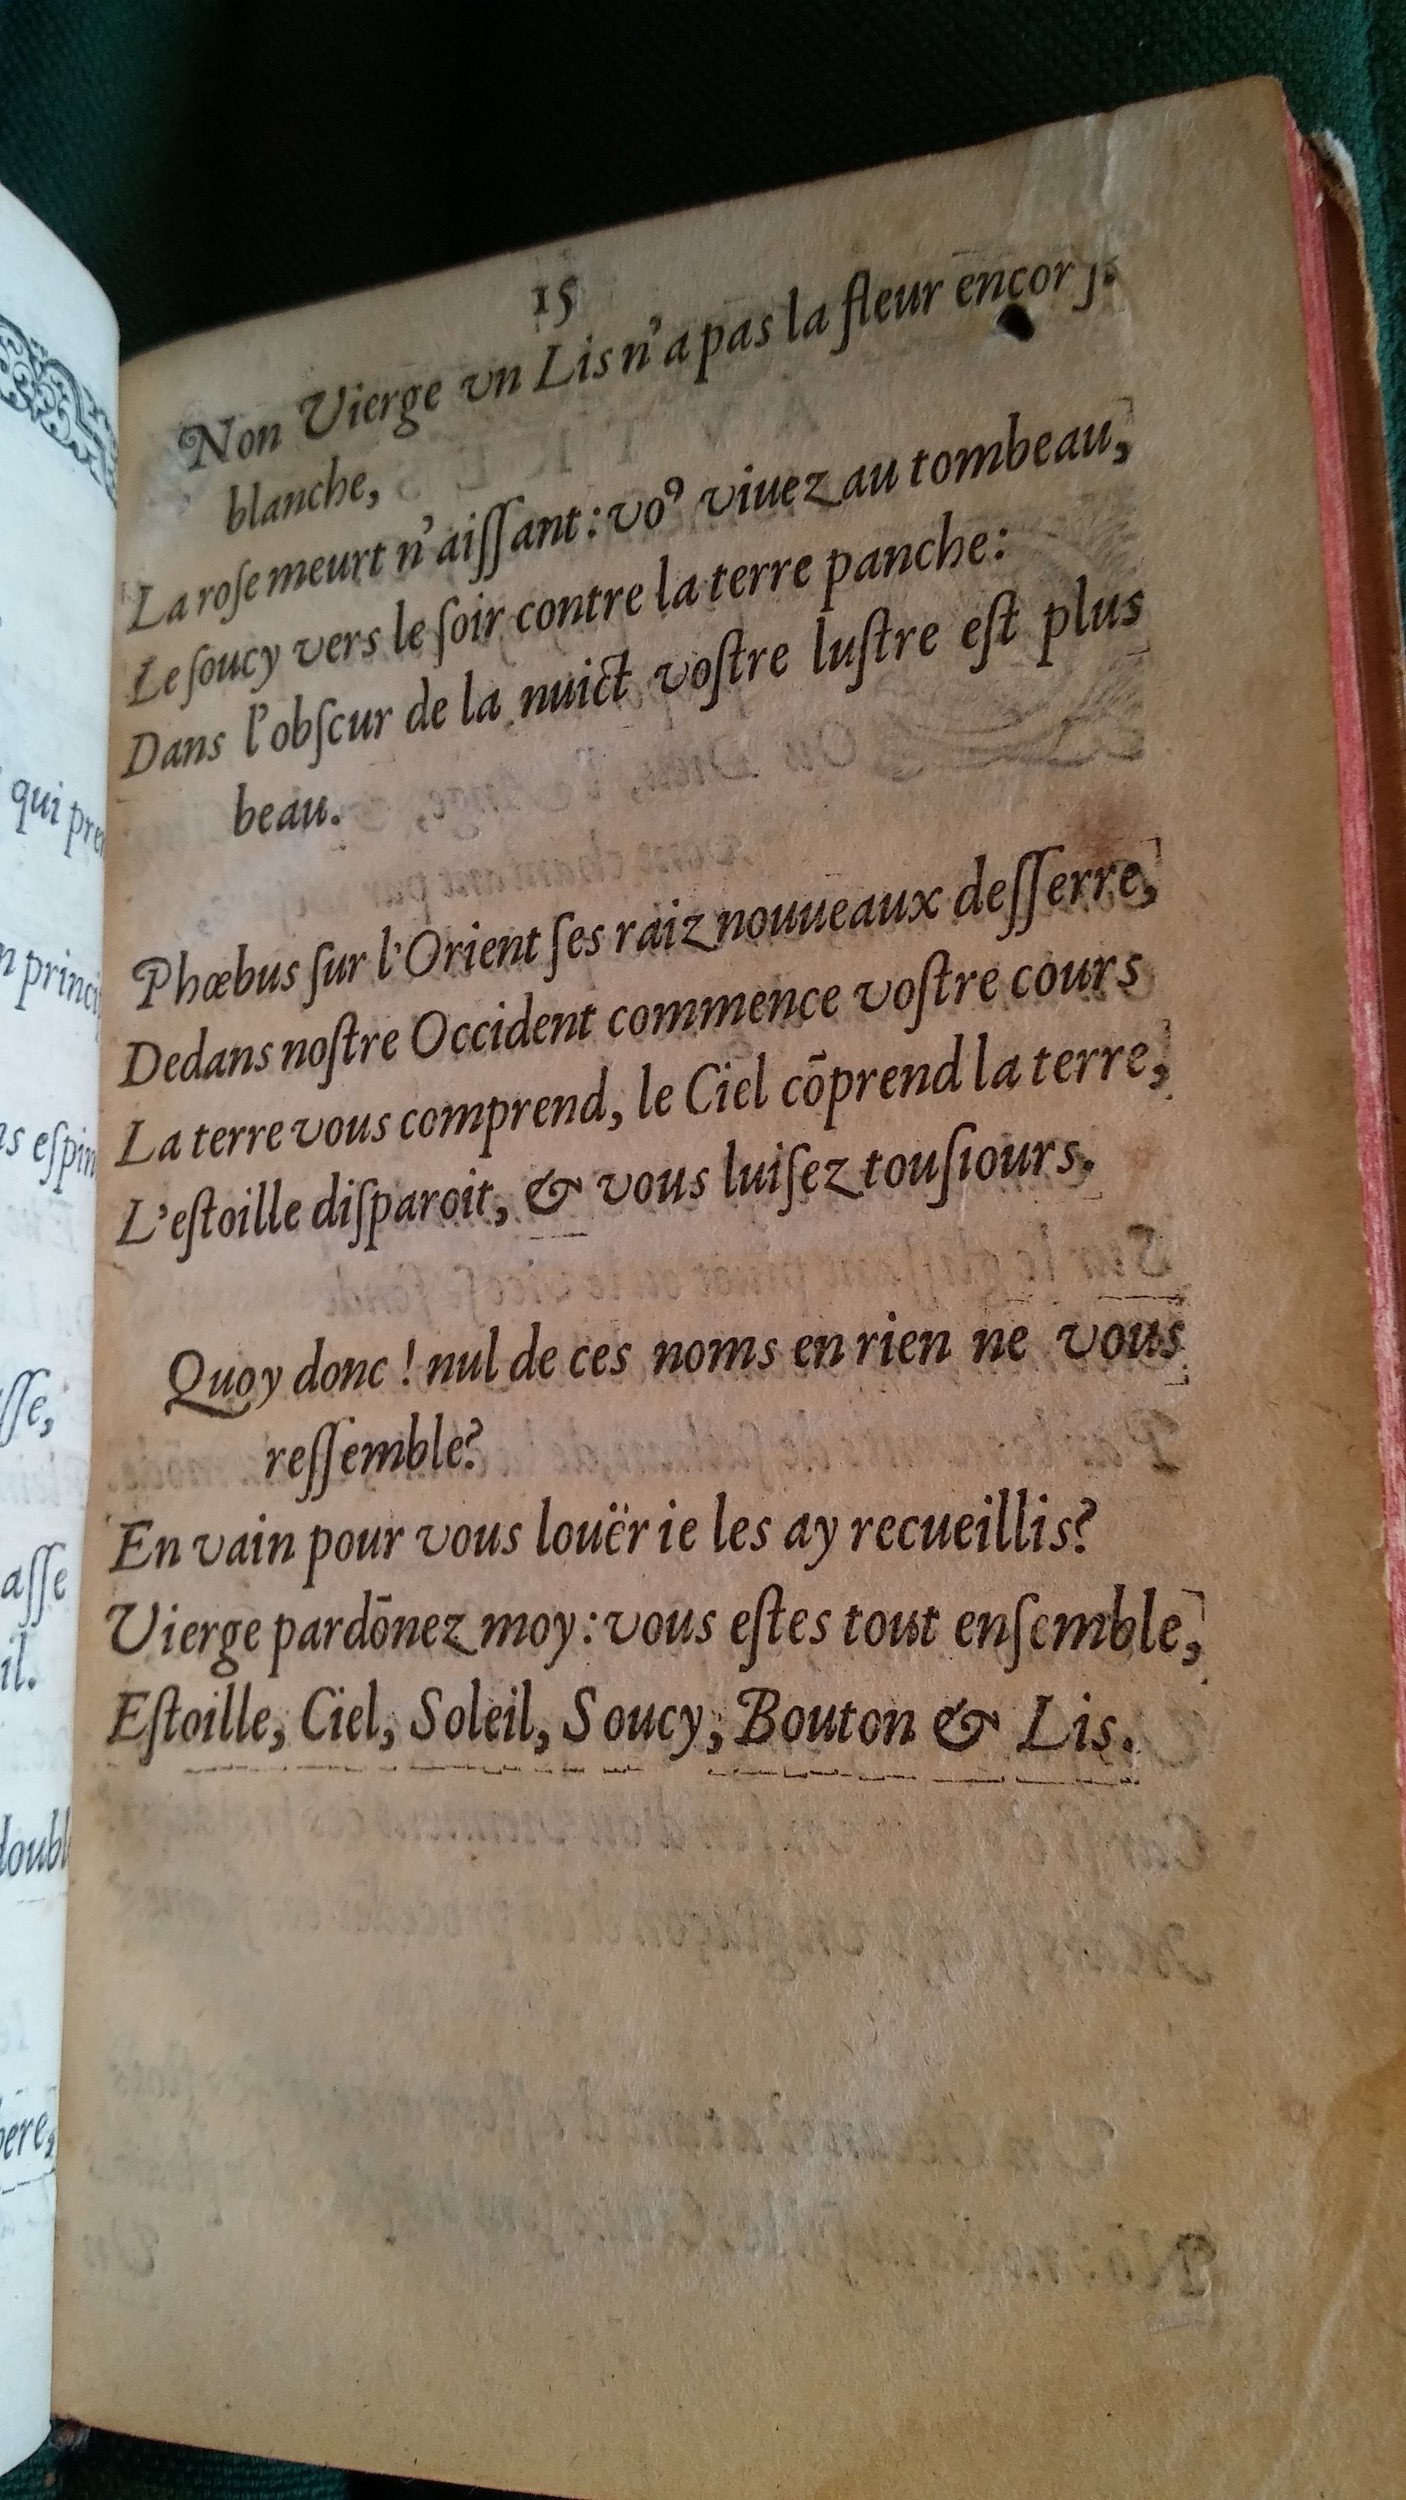 15
Non Vierge vn Lis n'a pas la fleur encor
blanche,
La rose meurt n'aiſſant: voꝰ viuez au tombeau,
Le ſoucy vers le ſoir contre la terre panche:
Dans l'obſcur de la nuict voſtre luſtre eſt plus
beau.
Phœbus ſur l'Orient ſes raiz nouueaux deſſerre,
Dedans noſtre Occident commence voſtre cours
La terre vous comprend, le Ciel cōprend la terre,
L'eſtoille diſparoit, & vous luiſez touſiours.
Quoy donc ! nul de ces noms en rien ne vous
reſſemble?
En vain pour vous louër ie les ay recueillis?
Vierge pardōnez moy: vous eſtes tout enſemble,
Eſtoille, Ciel, Soleil, Soucy, Bouton & Lis.